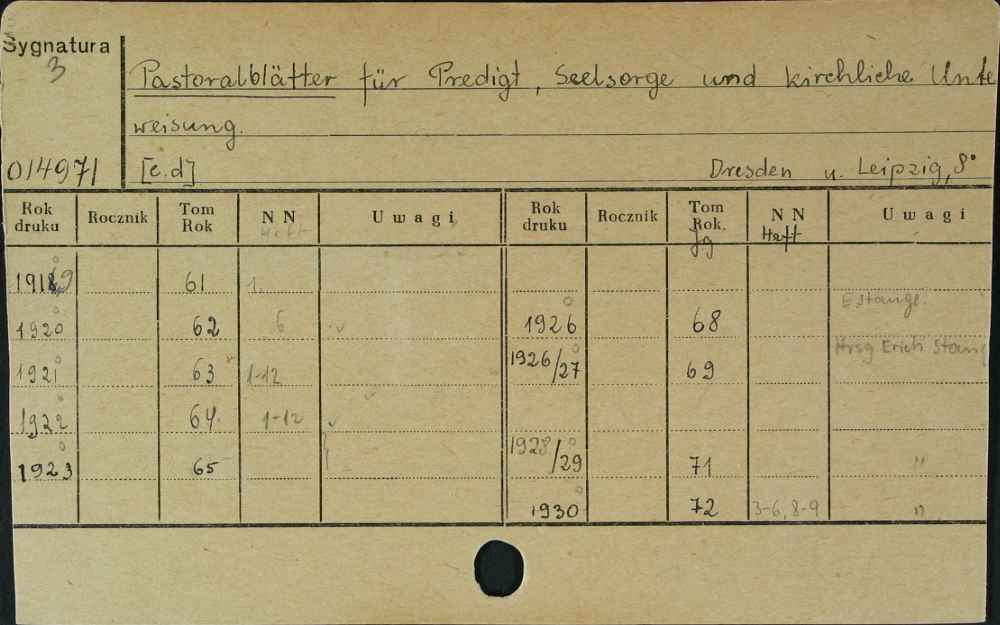 Sygnatura
3
Pastoralblätter für Predigt, Seelsorge und kirchliche Unte
weisung.
014971
[c.d]
Dresden u. Leipzig, 8°
Rok druku Rocznik Tom Rok N N Heft Uwagi Rok druku Rocznik Tom Rok. Jg N N Heft Uwagi
61 1.
1920 62 6 1926 68 E. Stange
1921 63 1-12 1926/27 69 Hrsg Erich Stang
1922 64. 1-12
1923 65 1928/29 71 "
1930 72 3-6, 8-9 "